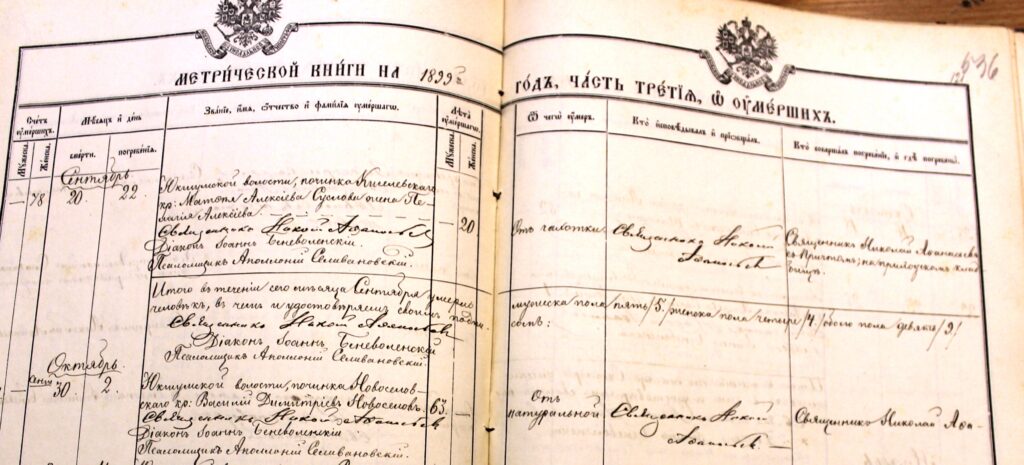 МЕТРИЧЕСКОЙ КНИГИ НА 1899 г
ГОДЪ, ЧАСТЬ ТРЕТІЯ, Ѡ ОУМЕРШИХЪ.
536
Счетъ оумершихъ.
Мѣсяцъ и день
Званіе, имя, ѻтчество и фамилія оумершаго.
Лѣта оумершаго.
Ѿ чего оумеръ.
Кто исповѣдывалъ и пріобщалъ.
Кто совершалъ погребеніе, и гдѣ погребены.
Мужеска. Женска.
смерти.
погребенія.
Мужеска. Женска.
Сентябрь
— 78 20. 22.
Юкшумской волости, починка Киселевскаго
кр: Матѳея Алексѣева Суслова жена Пе-
лагія Алексѣева.
— 20.
Священникъ Николай Аѳанасьевъ
Діаконъ Іоаннъ Беневоленскій.
Псаломщикъ Аполлоній Селивановскій.
Отъ чахотки
Священникъ Николай
Аѳанасьевъ
Священникъ Николай Аѳанасьевъ
съ причтомъ; на приходскомъ клад-
бищѣ
Итого въ теченіи сего мѣсяца Сентября умерло
мужеска пола пять /5/ женска пола четыре /4/ обоего пола девять /9/
человѣкъ, въ чемъ и удостовѣряемъ своимъ подпи-
сомъ:
Священникъ Николай Аѳанасьевъ
Діаконъ Іоаннъ Беневоленскій
Псаломщикъ Аполлоній Селивановскій.
Октябрь
Сент 30 2.
Юкшумской волости, починка Новоселов-
скаго кр: Василій Димитріевъ Новоселовъ.
63. —
Священникъ Николай Аѳанасьевъ
Діаконъ Іоаннъ Беневоленскій
Псаломщикъ Аполлоній Селивановскій.
Отъ
натуральной
Священникъ Николай
Аѳанасьевъ
Священникъ Николай Аѳа-